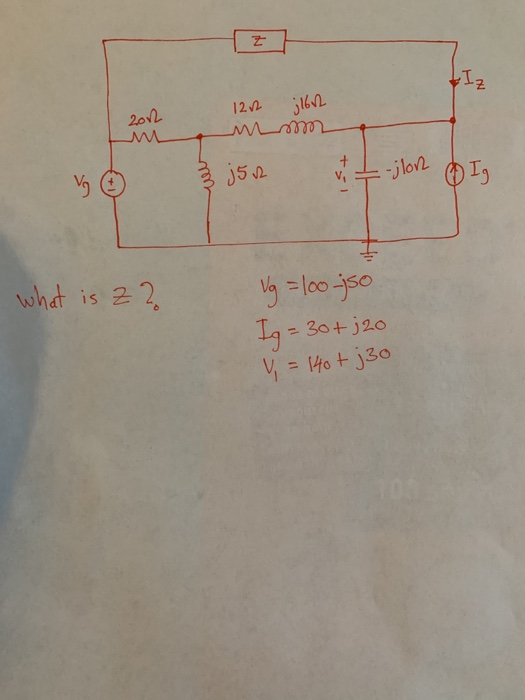 Z
Iz
20Ω
12Ω
j16Ω
Vg
+
-
j5Ω
+
V₁
-
-j10Ω
Ig
what is Z?
Vg = 100-j50
Ig = 30+j20
V₁ = 140+j30